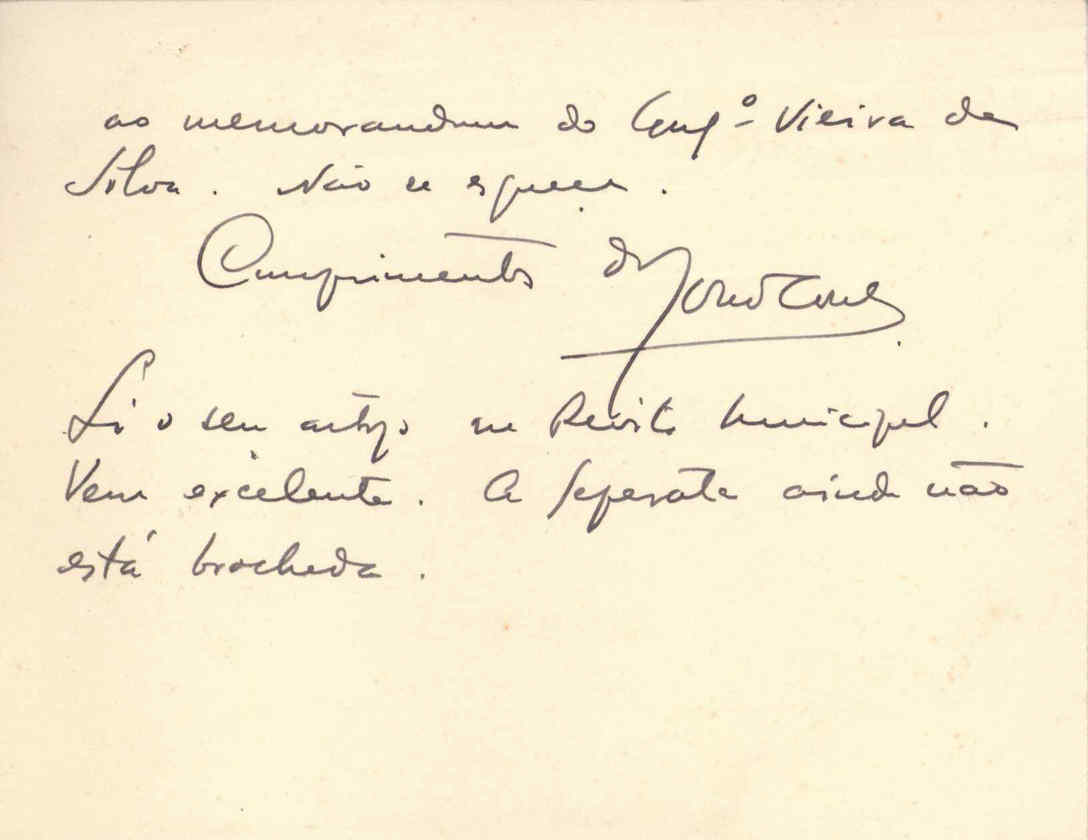 ao memorandum do Engº Vieira da
Silva. Não se esqueça.
Cumprimentos do
Li o seu artigo na Revista Municipal.
Vem excelente. A Separata ainda não
está brochada.